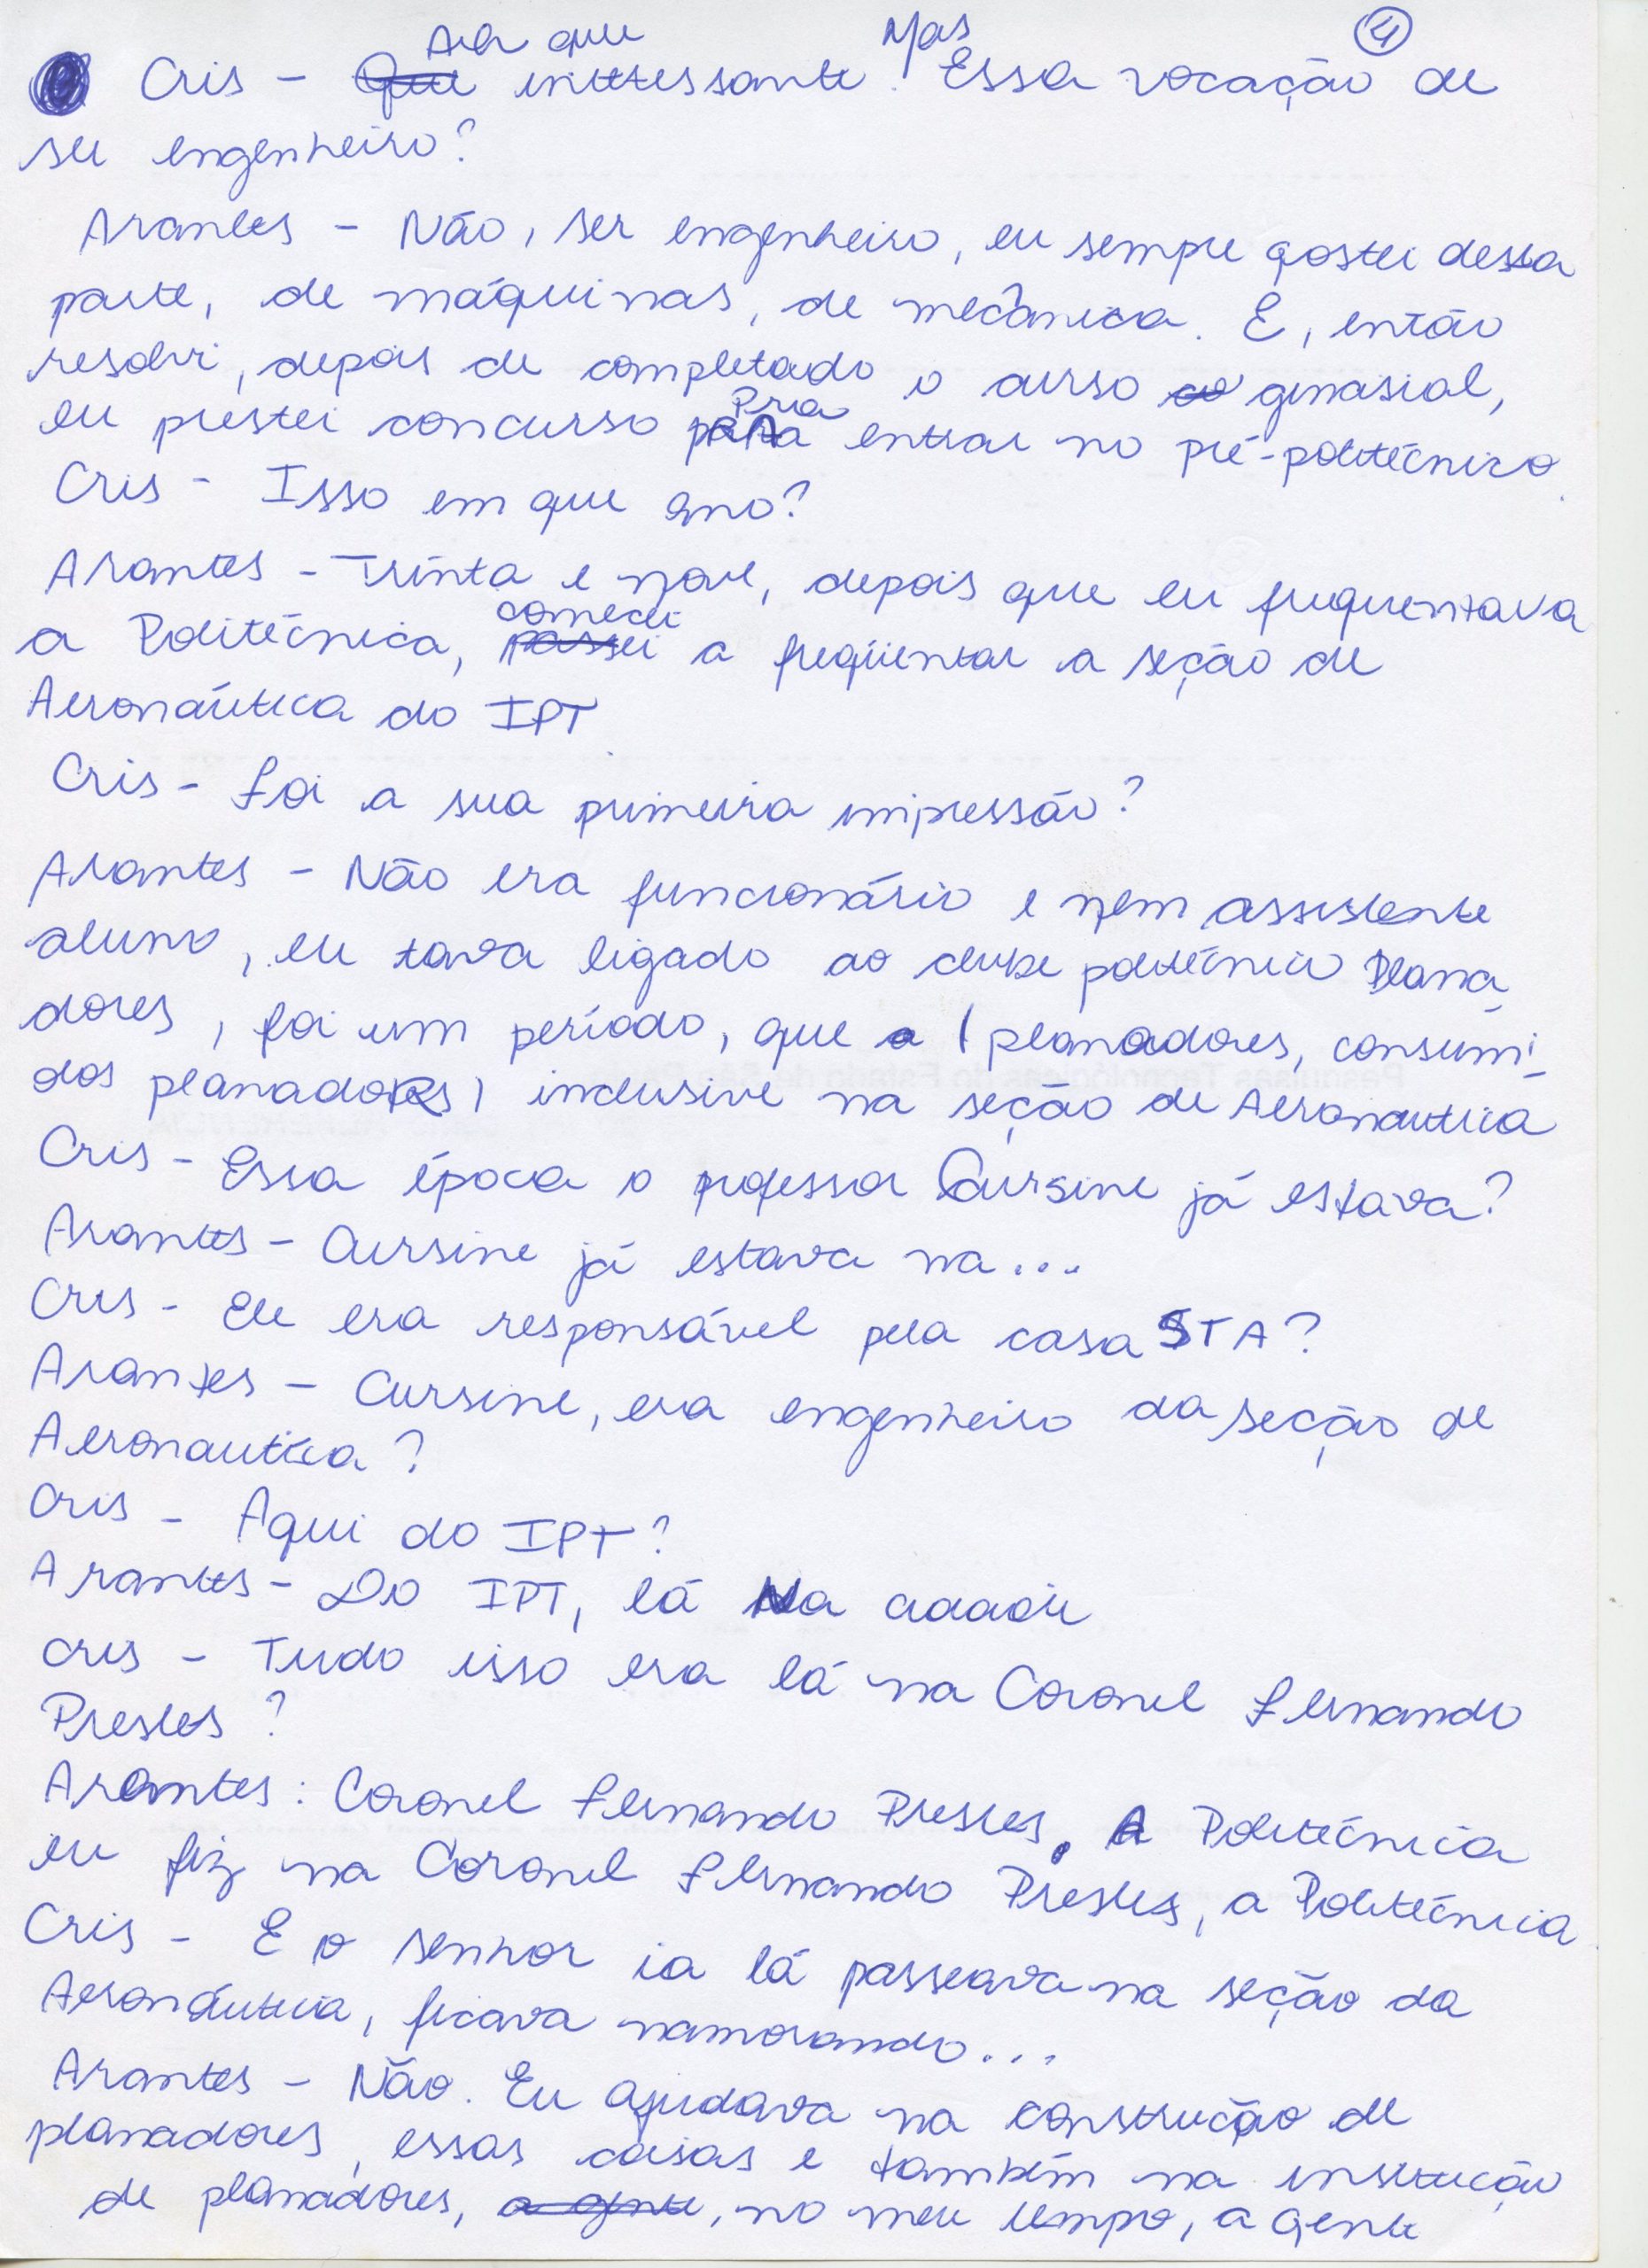 ④
Cris - Ah que interessante. Mas Essa vocação de
ser engenheiro?
Arantes - Não, ser engenheiro, eu sempre gostei dessa
parte, de máquinas, de mecânica. E, então
resolvi, depois de completado o curso ginasial,
eu prestei concurso pra entrar no pré-politécnico.
Cris - Isso em que ano?
Arantes - Trinta e nove, depois que eu frequentava
a Politécnica, comecei a freqüentar a seção de
Aeronáutica do IPT
Cris - Foi a sua primeira impressão?
Arantes - Não era funcionário e nem assistente
aluno, eu tava ligado ao clube politécnico Plana
dores, foi um período, que a (planadores, consumi_
dos planadores) inclusive na seção de Aeronautica
Cris - Essa época o professor Cursine já estava?
Arantes - Cursine já estava na...
Cris - Ele era responsável pela casa STA?
Arantes - Cursine, era engenheiro da seção de
Aeronautica?
Cris - Aqui do IPT?
Arantes - Do IPT, lá Na
Cris - Tudo isso era lá na Coronel Fernando
Prestes?
Arantes: Coronel Fernando Prestes. A Politécnica
eu fiz na Coronel Fernando Prestes, a Politécnica.
Cris - E o senhor ia lá passeava na seção da
Aeronáutica, ficava namorando...
Arantes - Não. Eu ajudava na construção de
planadores, essas coisas e também na instrução
de planadores, a gente, no meu tempo, a gente